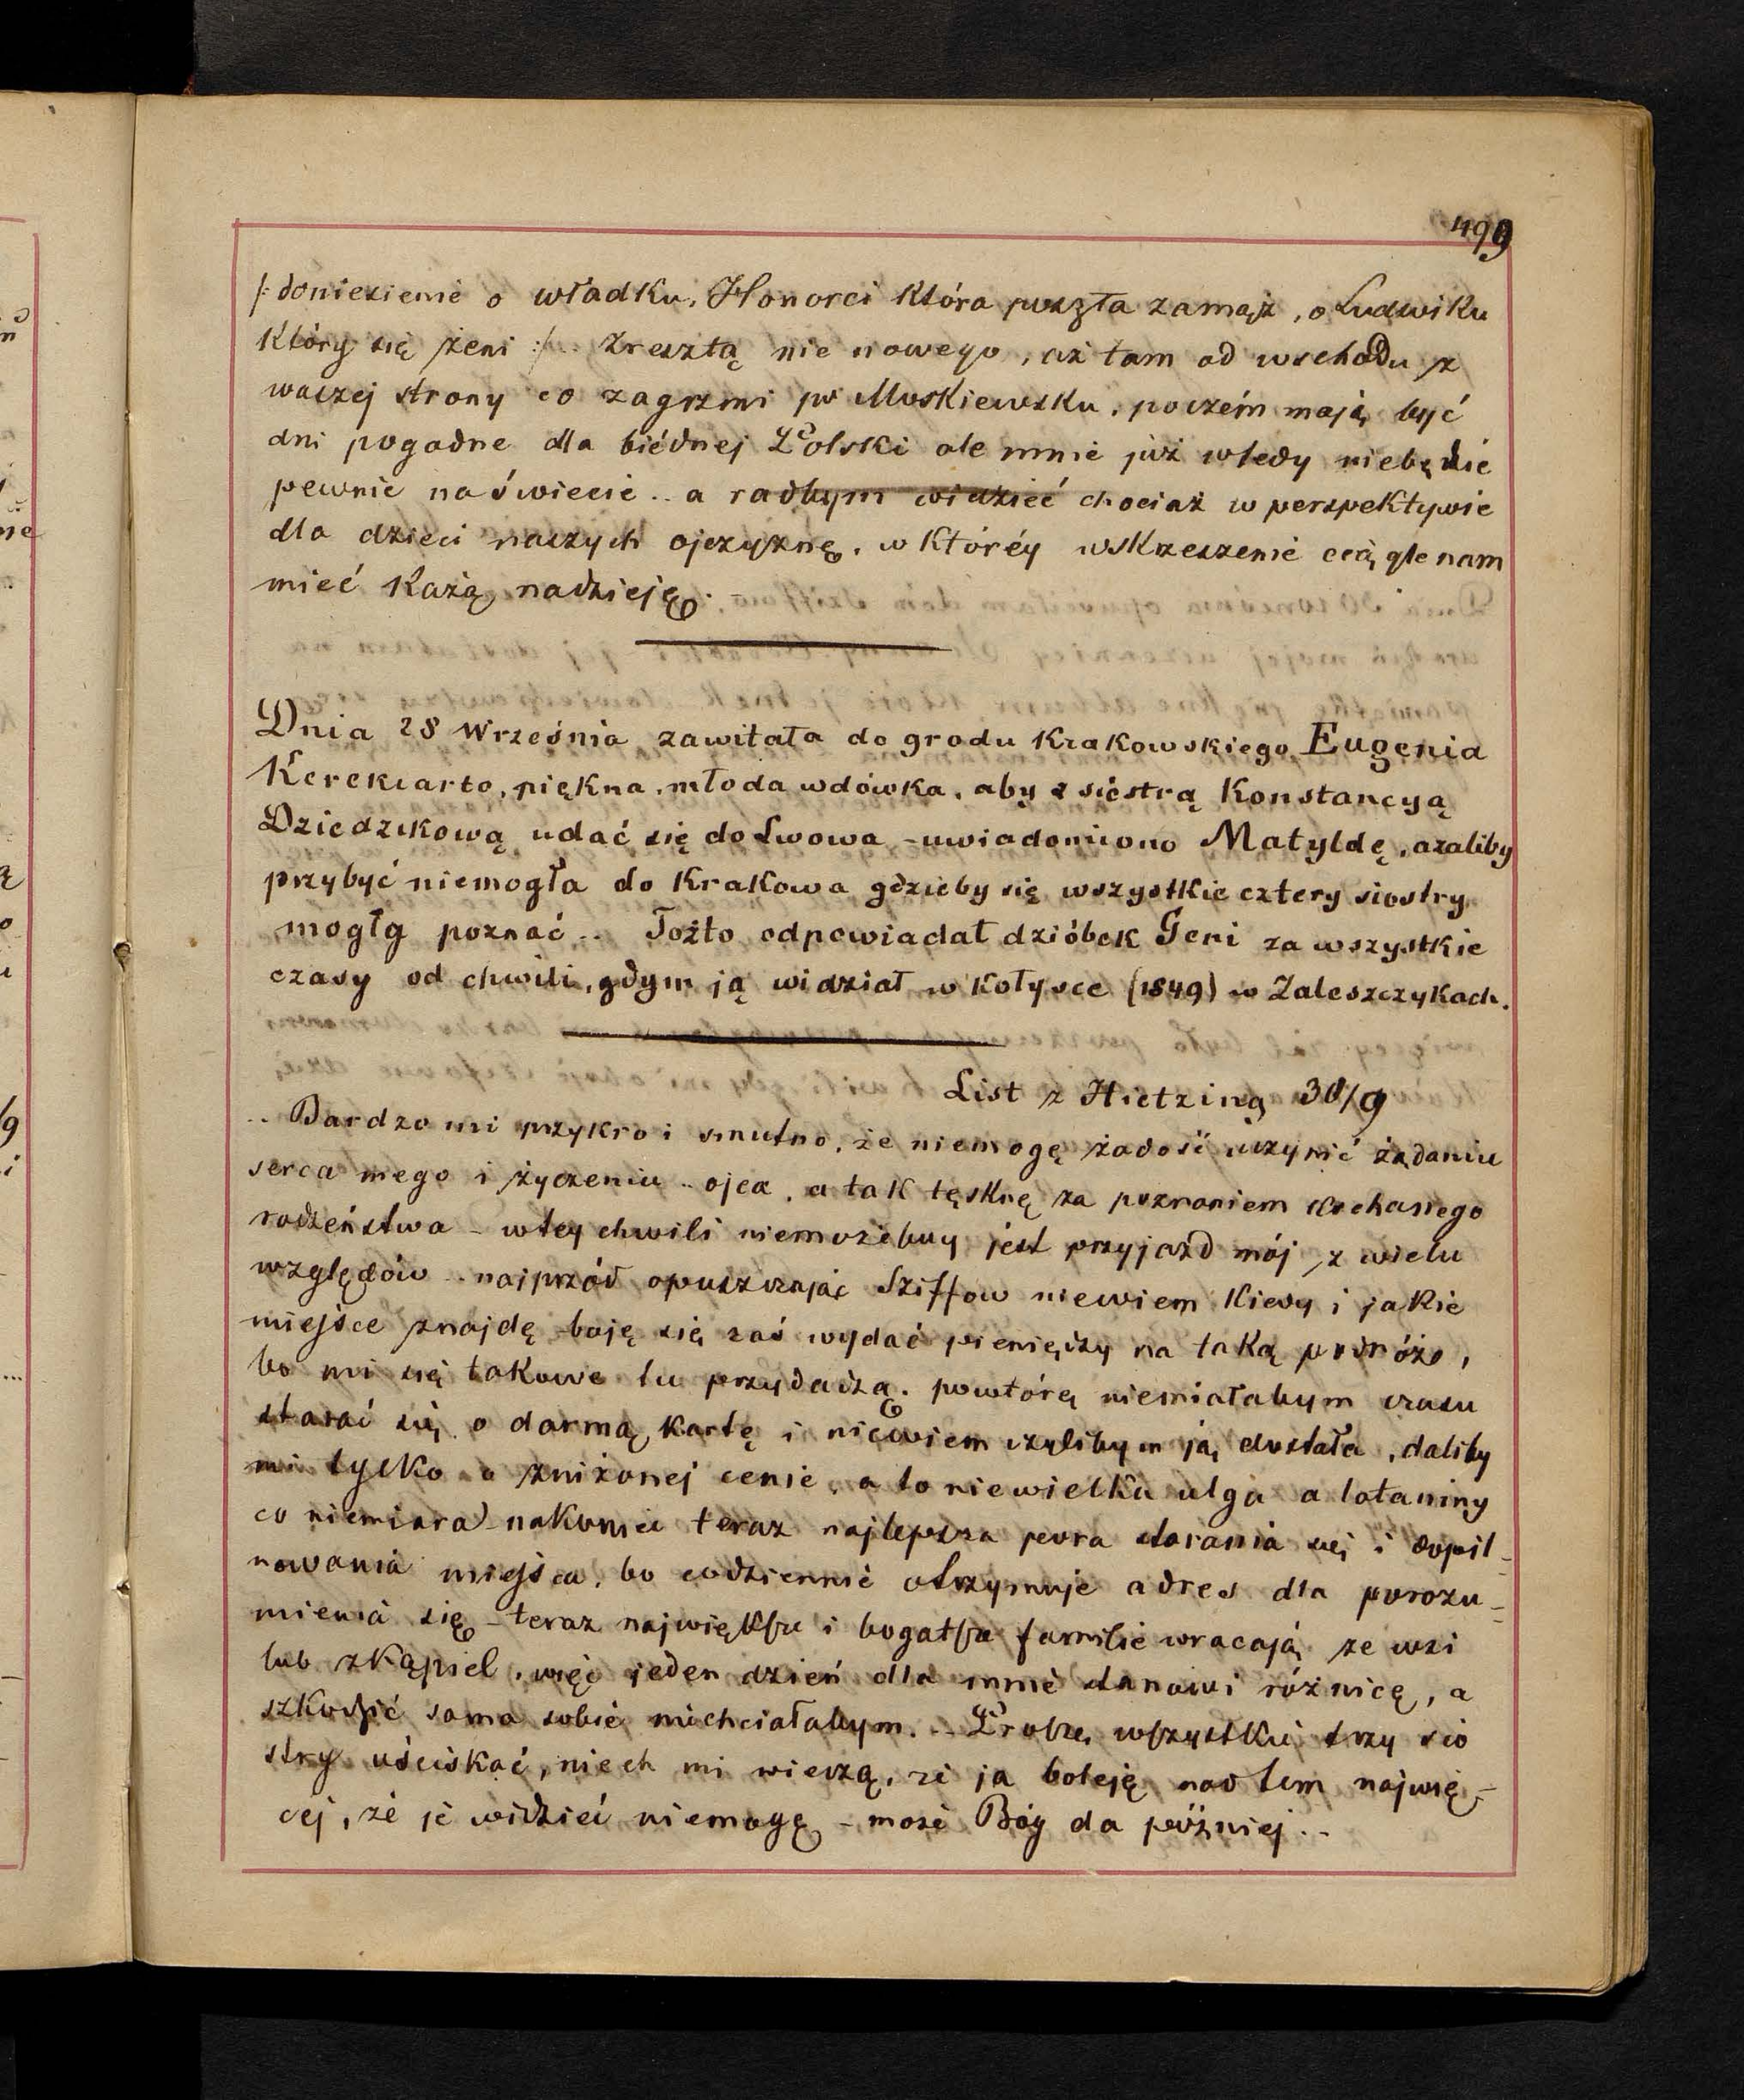 499
/: doniesienie o Władku, Honorci która poszła zamąż, o Ludwiku
który się żeni :/.. Zresztą nic nowego, aż tam od wschodu z
waszej strony co zagrzmi po Moskiewsku, poczém mają być
dni pogodne dla biédnej Polski ale mnie już wtedy niebędzie
pewnie na świecie .. a radbym widzieć chociaż w perspektywie
dla dzieci naszych ojczyznę, w któréy wskrzeszenie ciągle nam
mieć każą nadzieję.
Dnia 28 Września zawitała do grodu Krakowskiego Eugenia
Kerekiarto, piękna, młoda wdówka, aby z siostrą Konstancyą
Dziedzikową udać się do Lwowa - uwiadomiono Matyldę, azaliby
przybyć niemogła do Krakowa gdzieby się wszystkie cztery siostry
mogły poznać .. Tożto odpowiadał dzióbek Geni za wszystkie
czasy od chwili, gdym ją widział w kołysce (1849) w Zaleszczykach.
List z Hietzing 30/9
.. Bardzo mi przykro i smutno, że niemogę zadość uczynić żądaniu
serca mego i życzeniu .. ojca, a tak tęsknę za poznaniem kochanego
rodzeństwa - wtey chwili niemożebny jest przyjazd mój z wielu
względów .. najprzód opuszczając Sziffow niewiem kiedy i jakie
miejsce znajdę - boję się zaś wydać pieniędzy na taką podróż,
bo mi się takowe tu przydadzą. powtórę niemiałabym czasu
starać się o darmą kartę i niewiem czylibym ją dostała, daliby
mi tylko o zniżonej cenie, a to niewielka ulga a lataniny
co niemiara - nakoniec teraz najlepsza pora starania się i dopil-
nowania miejsca, bo codziennie otrzymuje adres dla porozu-
mienia się - teraz największe i bogatsze familie wracają ze wsi
lub z kąpiel, więc jeden dzień dla mnie stanowi różnicę, a
szkodzić sama sobie niechciałabym. .. Proszę wszystkie trzy sio
stry uściskać, niech mi wierzą, że ja boleję nad tem najwię-
cej, że je widzieć niemogę - może Bóg da później ..